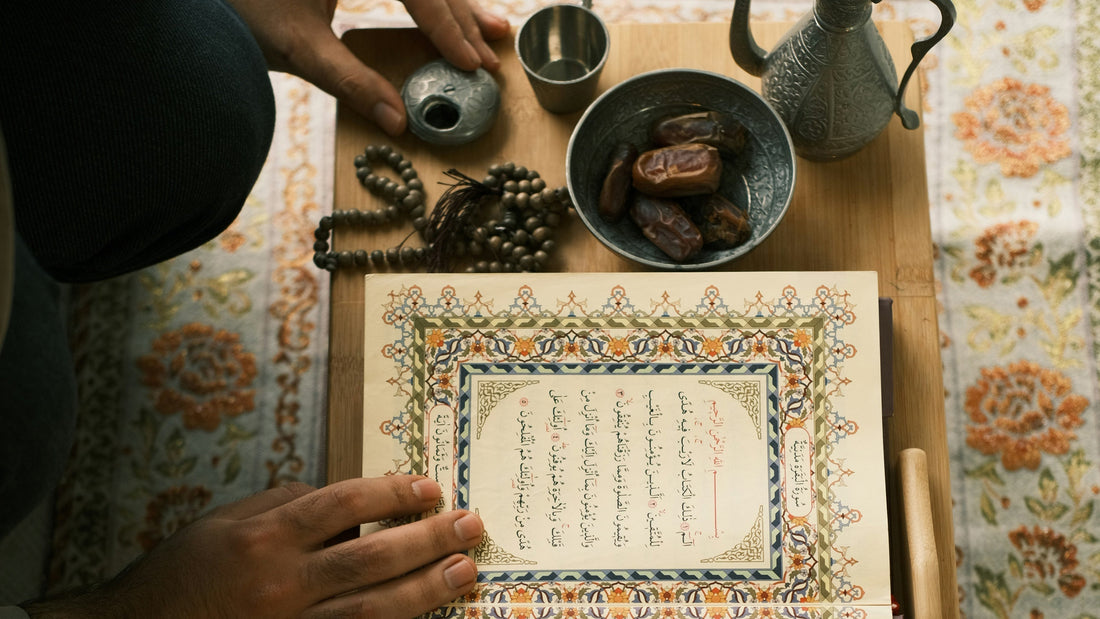 سُورَةُ الْبَقَرَةِ مَدَنِيَّةٌ
بِسْمِ اللهِ الرَّحْمٰنِ الرَّحِيمِ
الٓمٓ ۝١ ذٰلِكَ الْكِتَابُ لَا رَيْبَ فِيهِ هُدًى
لِلْمُتَّقِينَ ۝٢ اَلَّذِينَ يُؤْمِنُونَ بِالْغَيْبِ
وَيُقِيمُونَ الصَّلٰوةَ وَمِمَّا رَزَقْنَاهُمْ يُنْفِقُونَ ۝٣
وَالَّذِينَ يُؤْمِنُونَ بِمَا اُنْزِلَ اِلَيْكَ وَمَا اُنْزِلَ مِنْ
قَبْلِكَ وَبِالْاٰخِرَةِ هُمْ يُوقِنُونَ ۝٤ اُولٰئِكَ عَلٰى
هُدًى مِنْ رَبِّهِمْ وَاُولٰئِكَ هُمُ الْمُفْلِحُونَ ۝٥
وَثَمَانُونَ اٰيَةً